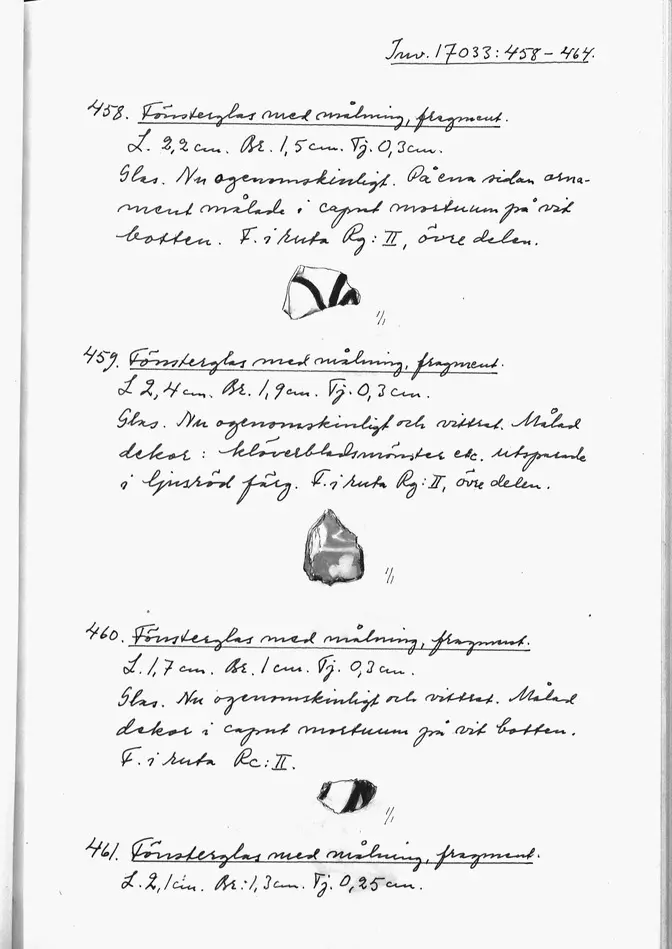 Inv. 17033:458-464.
458. Fönsterglas med målning, fragment.
L. 2,2cm. Br. 1,5cm. Tj. 0,3cm.
Glas. Nu ogenomskinligt. På ena sidan orna-
ment målade i caput mortuum på vit
botten. F. i ruta Rg: II, övre delen.
1/1
459. Fönsterglas med målning, fragment.
L 2,4cm. Br. 1,9cm. Tj. 0,3cm.
Glas. Nu ogenomskinligt och vittrat. Målad
dekor: klöverbladsmönster etc. utsparade
i ljusröd färg. F. i ruta Rg: II, övre delen.
1/1
460. Fönsterglas med målning, fragment.
L. 1,7cm. Br. 1cm. Tj. 0,3cm.
Glas. Nu ogenomskinligt och vittrat. Målad
dekor i caput mortuum på vit botten.
F. i ruta Rc: II.
1/1
461. Fönsterglas med målning, fragment.
L. 2,1cm. Br: 1,3cm. Tj. 0,25cm.